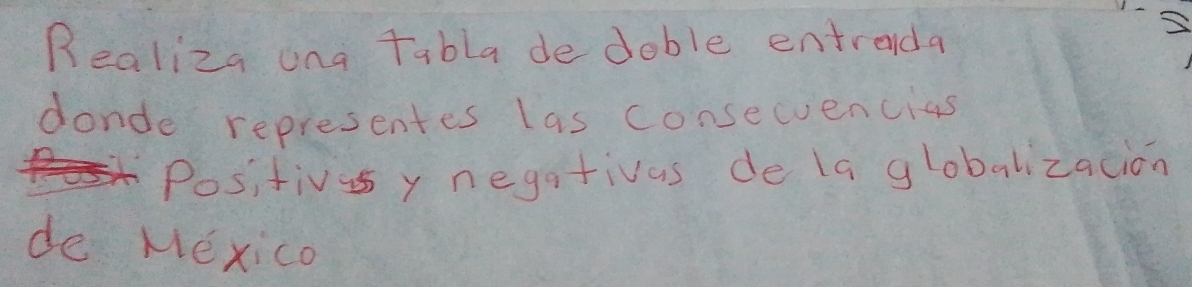 Realiza una tabla de doble entrada
donde representes las consecuencias
Positivas y negativas de la globalización
de México